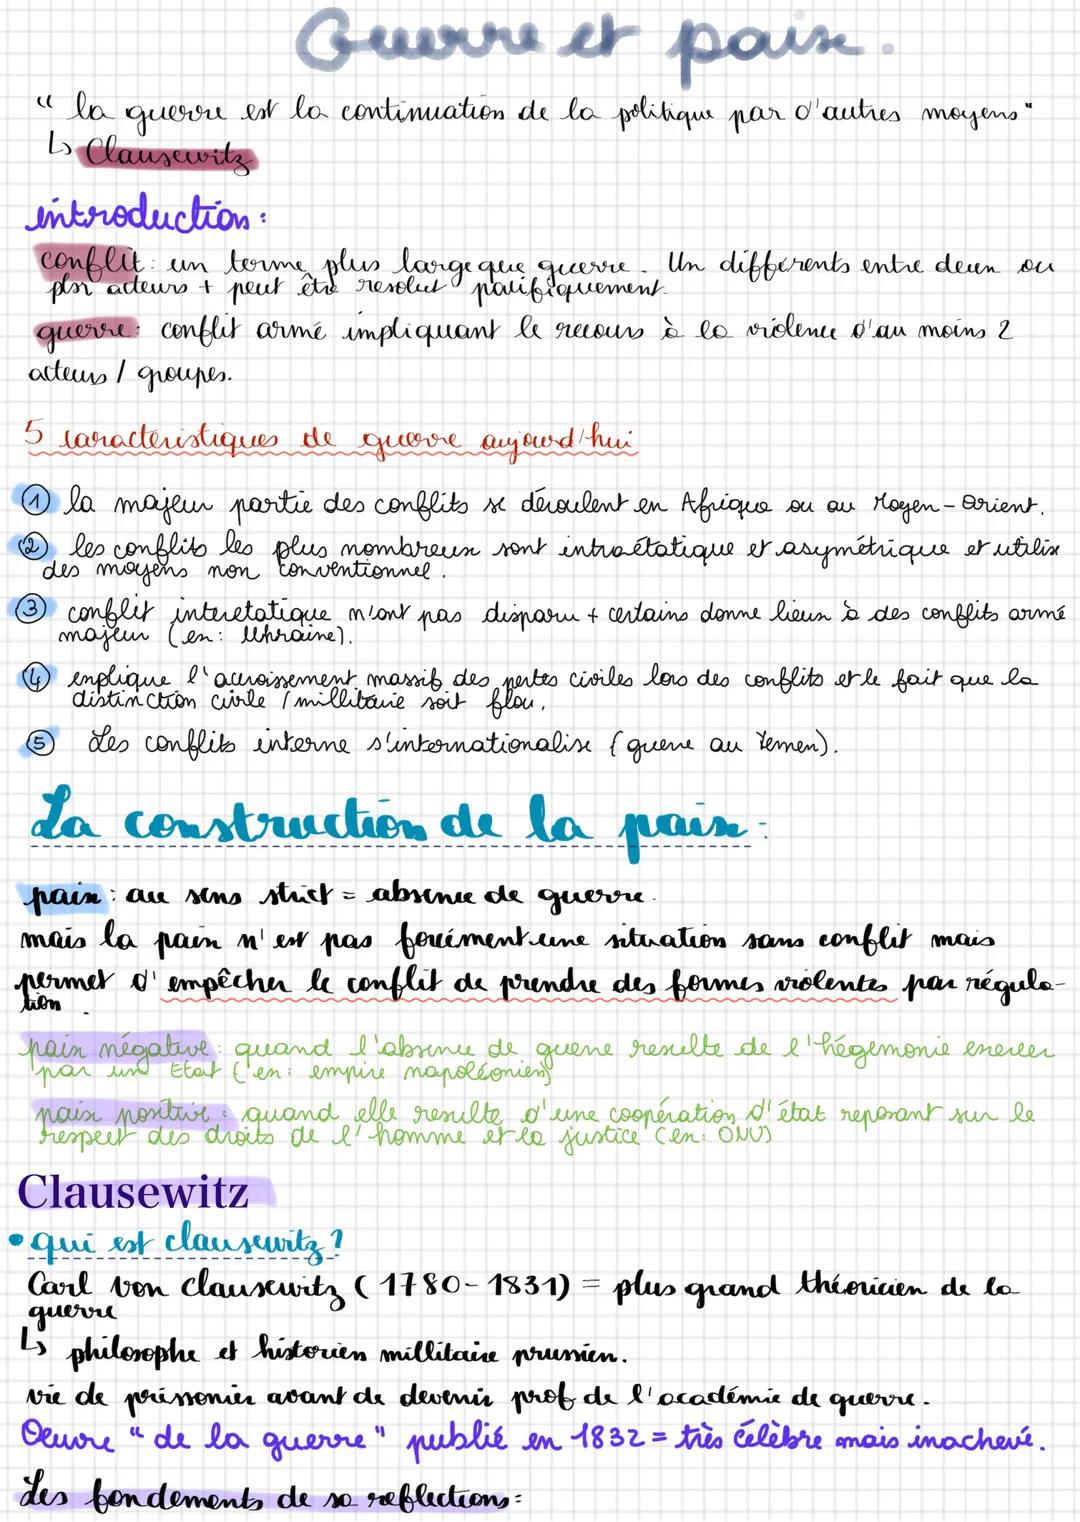 Guerre et paix.
" la guerre est la continuation de la politique par d'autres moyens "
↳ Clausewitz
introduction :
conflit : un terme plus large que guerre. Un différents entre deux ou
plsr acteurs + peut être resolut pacifiquement.
guerre : conflit armé impliquant le recours à la violence d'au moins 2
acteurs / groupes.
5 caracteristiques de guerre aujourd'hui
① la majeur partie des conflits se déroulent en Afrique ou au Moyen-Orient.
② les conflits les plus nombreux sont intraétatique et asymétrique et utilise
des moyens non conventionnel.
③ conflit interetatique n'ont pas disparu + certains donne lieux à des conflits armé
majeur (ex : Ukraine).
④ explique l'accroissement massif des pertes civiles lors des conflits et le fait que la
distinction civile / millitaire soit flou.
⑤ Les conflits interne s'internationalise (guerre au Yemen).
La construction de la paix :
paix : au sens strict = absence de guerre.
mais la paix n'est pas forcément une situation sans conflit mais
permet d'empêcher le conflit de prendre des formes violentes par régula-
tion.
paix négative : quand l'absence de guerre resulte de l'hégemonie exercer
par un Etat (ex : empire napoléonien)
paix positive : quand elle resulte d'une coopération d'état reposant sur le
respect des droits de l'homme et la justice (ex : ONU)
Clausewitz
• qui est clausewitz ?
Carl von clausewitz (1780-1831) = plus grand théoricien de la
guerre
↳ philosophe et historien millitaire prussien.
vie de prissonier avant de devenir prof de l'académie de guerre.
Oeuvre " de la guerre " publié en 1832 = très célèbre mais inachevé.
Les fondements de sa reflections :